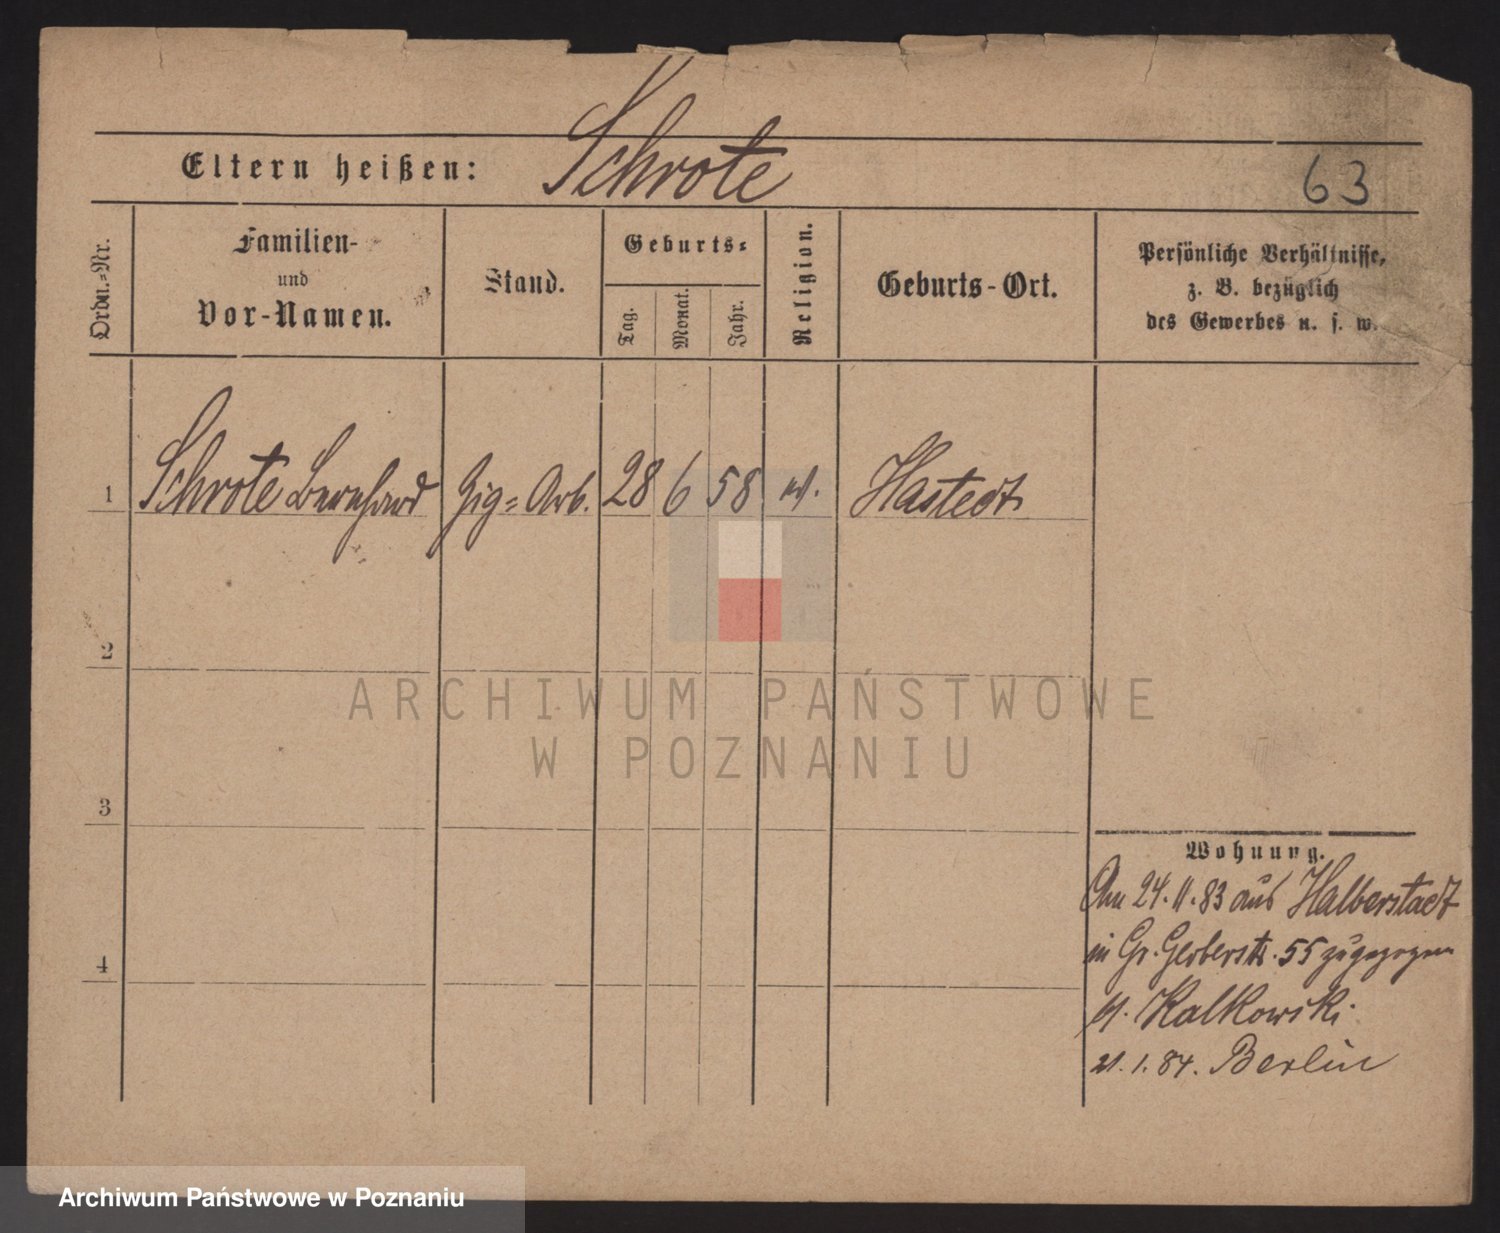 Eltern heißen: Schrote
63
Ordn.-Nr.
Familien-
und
Vor-Namen.
Stand.
Geburts-
Tag.
Monat.
Jahr.
Religion.
Geburts-Ort.
Persönliche Verhältnisse,
z. B. bezüglich
des Gewerbes u. s. w.
1 Schrote Bernhard Zig-Arb. 28 6 58 ev. Hastedt
2
3
4
Wohnung.
Am 24.11.83 aus Halberstadt
in Gr. Gerberstr. 55 zugezogen
Kalkowski
21.1.84. Berlin
ARCHIWUM PAŃSTWOWE
W POZNANIU
Archiwum Państwowe w Poznaniu